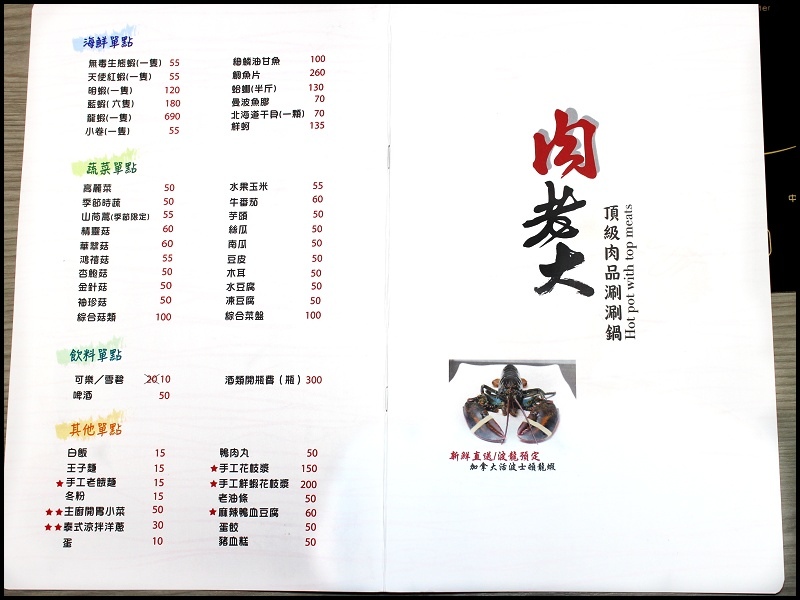 海鮮單點
無毒生態蝦(一隻) 55
天使紅蝦(一隻) 55
明蝦(一隻) 120
藍蝦(六隻) 180
龍蝦(一隻) 690
小卷(一隻) 55
細鱗油甘魚 100
鯛魚片 260
蛤蠣(半斤) 130
曼波魚膠 70
北海道干貝(一顆) 70
鮮蚵 135
蔬菜單點
高麗菜 50
季節時蔬 50
山茼蒿(季節限定) 55
精靈菇 60
華翠菇 60
鴻禧菇 55
杏鮑菇 50
金針菇 50
袖珍菇 50
綜合菇類 100
水果玉米 55
牛番茄 60
芋頭 50
絲瓜 50
南瓜 50
豆皮 50
木耳 50
水豆腐 50
凍豆腐 50
綜合菜盤 100
飲料單點
可樂／雪碧 20 10
啤酒 50
酒類開瓶費（瓶）300
其他單點
白飯 15
王子麵 15
★手工老麵麵 15
冬粉 15
★★主廚開胃小菜 50
★★泰式涼拌洋蔥 30
蛋 10
鴨肉丸 50
★手工花枝漿 150
★手工鮮蝦花枝漿 200
老油條 50
★麻辣鴨血豆腐 60
蛋餃 50
豬血糕 50
肉老大
頂級肉品涮涮鍋
Hot pot with top meats
新鮮直送/波龍預定
加拿大活波士頓龍蝦
中